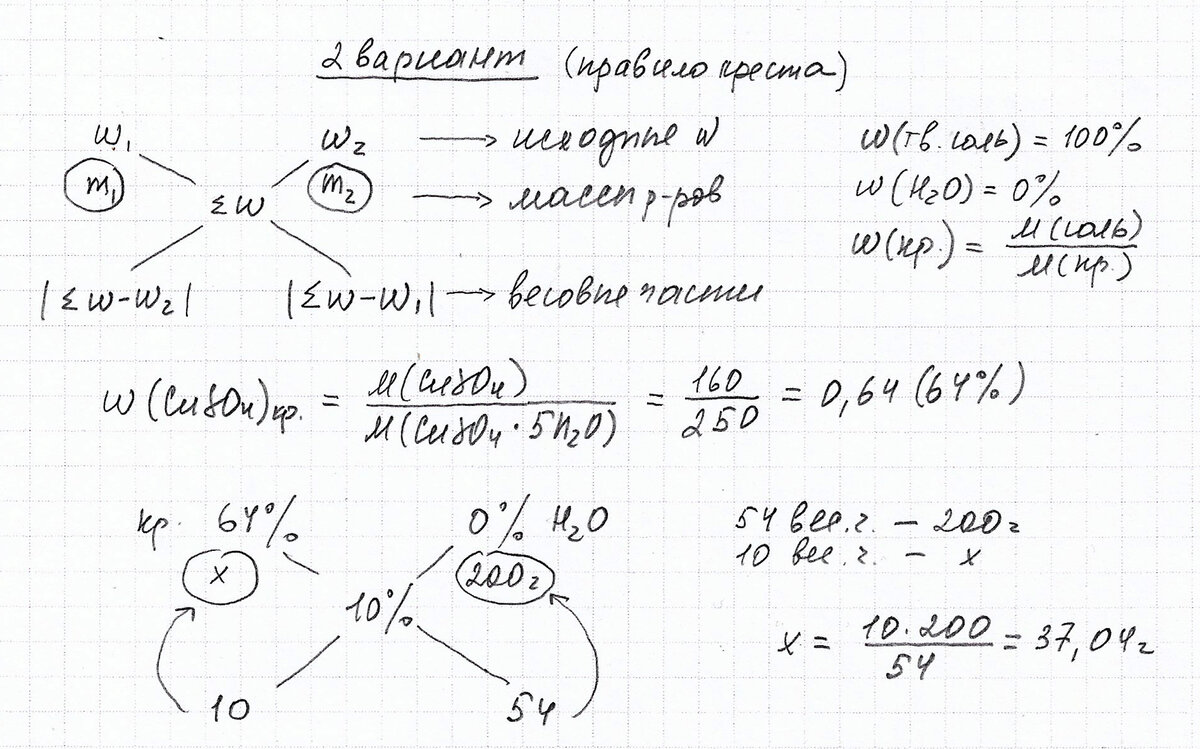 2 вариант (правило креста)
W₁ W₂ → исходные W
m₁ m₂ → массы р-ров
ΣW
|ΣW-W₂| |ΣW-W₁| → весовые части
W(тв. соль) = 100%
W(H₂O) = 0%
W(кр.) = M(соль) / M(кр.)
W(CuSO₄)кр. = M(CuSO₄) / M(CuSO₄·5H₂O) = 160 / 250 = 0,64 (64%)
кр. 64% 0% H₂O
x 200г
10%
10 54
54 вес.ч. – 200г
10 вес.ч. – x
x = 10·200 / 54 = 37,04г